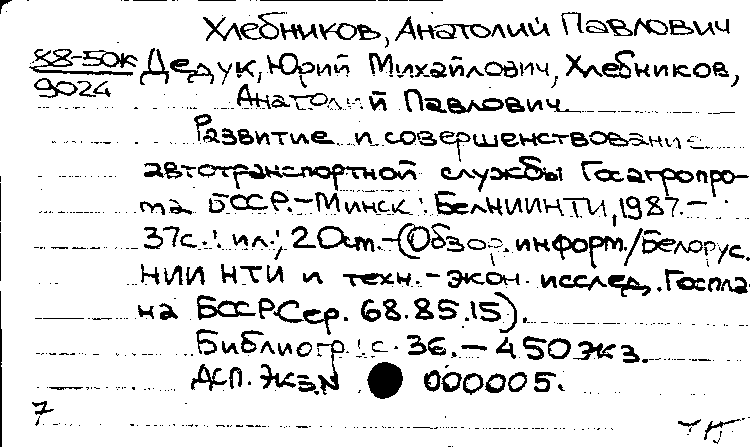 Хлебников, Анатолий Павлович
88-50К
9024
Дедук, Юрий Михайлович, Хлебников,
Анатолий Павлович.
Развитие и совершенствование
автотранспортной службы Госагропро-
ма БССР.-Минск: БелНИИНТИ, 1987.-
37с.: ил.; 20 см.-(Обзор. информ./Белорус.
НИИ НТИ и техн.-экон. исслед. Госпла-
на БССР. Сер. 68.85.15).
Библиогр.: с. 36.-450 экз.
ДСП. Экз. N 000005.
7